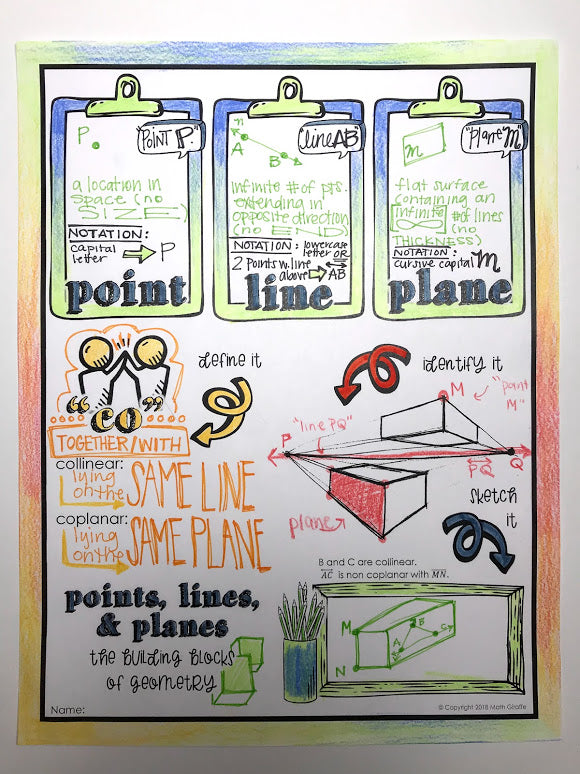 P
"POINT P."
a location in
space (no
SIZE)
NOTATION:
capital
letter
P
point
n
A
B
"line AB"
infinite # of pts.
extending in
opposite direction
(no END)
NOTATION: lowercase
letter OR
2 Points w. line
above
AB
line
m
"Plane m"
flat surface
containing an
infinite
# of lines
(no
THICKNESS)
NOTATION:
cursive capital M
plane
"co"
TOGETHER/WITH
define it
collinear:
lying
on the
SAME LINE
coplanar:
lying
on the
SAME PLANE
identify it
M
"point
M"
"line PQ"
P
Q
PQ
plane
sketch
it
B and C are collinear.
AC is non coplanar with MN.
M
N
A
B
C
points, lines,
& planes
the building blocks
of geometry
Name:
© Copyright 2018 Math Giraffe